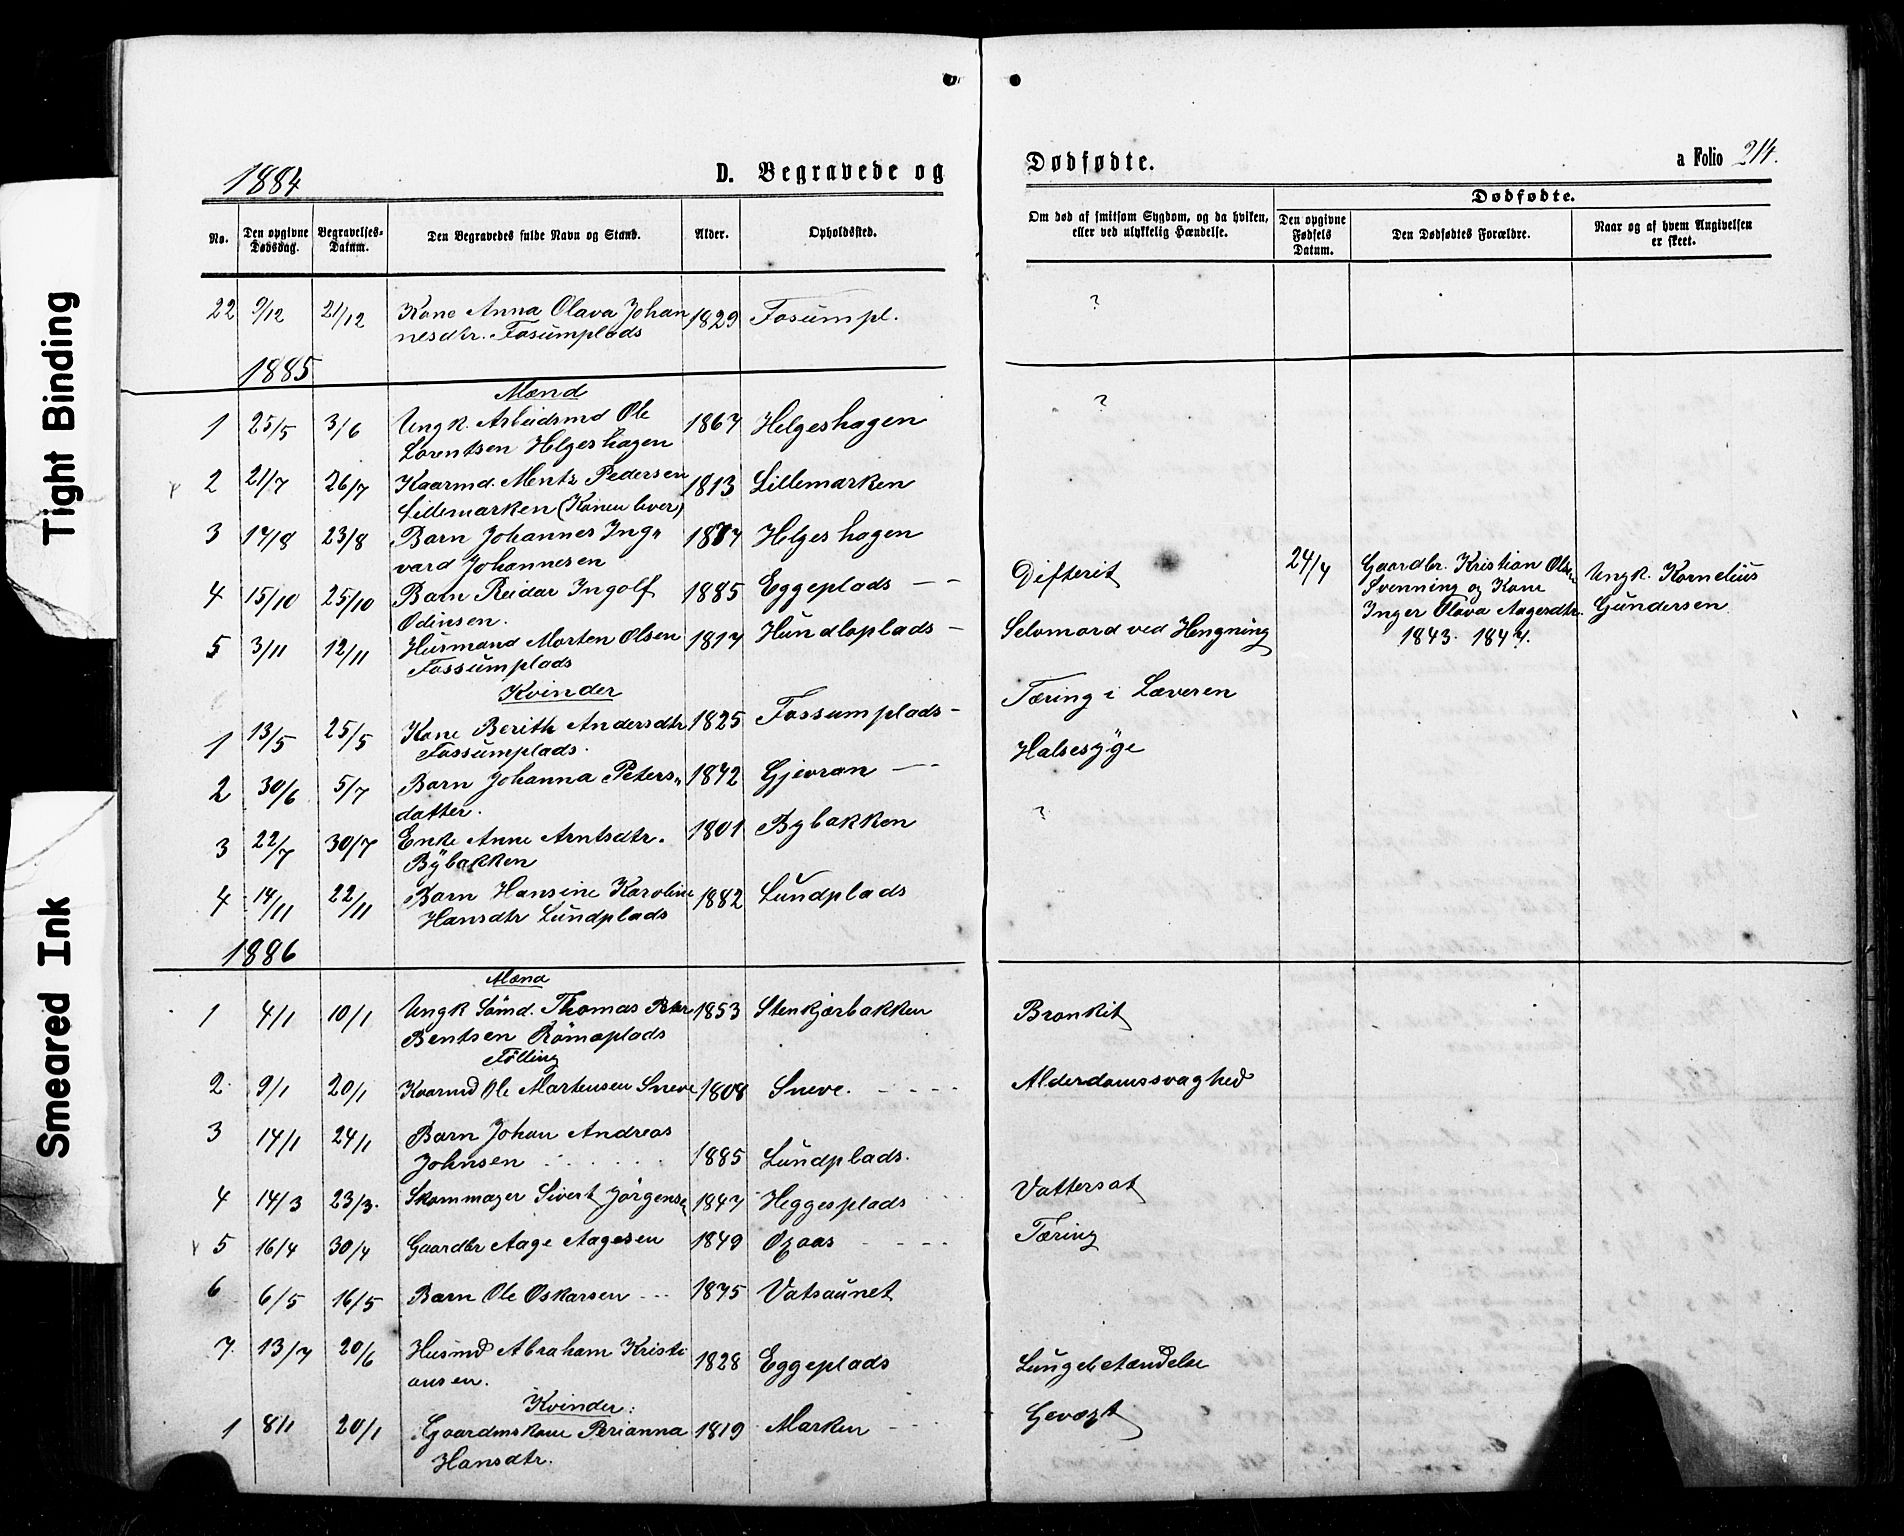 Tight Binding
Smeared Ink
1884
D. Begravede og
Dødfødte.
a Folio 214.
No.
Den opgivne Dødsdag.
Begravelses-Datum.
Den Begravedes fulde Navn og Stand.
Alder.
Opholdssted.
Om død af smitsom Sygdom, og da hvilken, eller ved ulykkelig Hændelse.
Dødfødte.
Den opgivne Fødsels Datum.
Den Dødfødtes Forældre.
Naar og af hvem Angivelsen er skeet.
22 9/12 21/12 Kone Anna Olava Johan 1829 Fosumpl. ?
nesdtr. Fosumplads
1885
Mænd
1 25/5 3/6 Ungk. Arbeidsmd Ole 1867 Helgeshagen ?
Lorentsen Helgeshagen
2 21/7 26/7 Kaarmd. Mentz Pedersen 1813 Lillemarken
Lillemarken (Konen lever)
3 17/8 23/8 Barn Johannes Ing„ 1877 Helgeshagen
vard Johannesen
4 15/10 25/10 Barn Reidar Ingolf 1885 Eggeplads Difterit
Odinsen.
24/7 Gaardbr. Kristian Olsen
Svenning og Kone
Inger Olava Aagesdtr.
1843. 1847.
Ungk. Kornelius
Gundersen
5 3/11 12/11 Husmand Morten Olsen 1817 Hundloplads Selvmord ved Hengning
Fossumplads
Kvinder
1 13/5 25/5 Kone Berith Andersdtr 1825 Fossumplads Tæring i Læveren
Fossumplads.
2 30/6 5/7 Barn Johanna Peters„ 1872 Gjevran Halsesyge
datter.
3 22/7 30/7 Enke Anne Arntsdtr. 1801 Bybakken ?
Bybakken
4 14/11 22/11 Barn Hansine Karoline 1882 Lundplads
Hansdtr Lundplads
1886
Mænd
1 4/1 10/1 Ungk Sømd. Thomas Peter 1853 Stenkjærbakken Bronkit
Bentsen Römoplads
Fölling
2 9/1 20/1 Kaarmd Ole Martensen Sneve 1808 Sneve. Alderdomssvaghed
3 14/1 24/1 Barn Johan Andreas
Johnsen 1885 Lundplads.
4 14/3 23/3. Skommager Sivert Jörgensen 1847 Heggesplads Vattersot
5 16/4 30/4 Gaardbr Aage Aagesen 1849 Ogaas Tæring
6 6/5 16/5 Barn Ole Oskarsen 1875 Vatsaunet
7. 13/7 20/6 Husmd Abraham Kristi 1828 Eggeplads Lungebetændelse
ansen.
Kvinder:
1 8/1 20/1 Gaardmskone Perianna 1819 Marken Gevægt
Hansdtr.